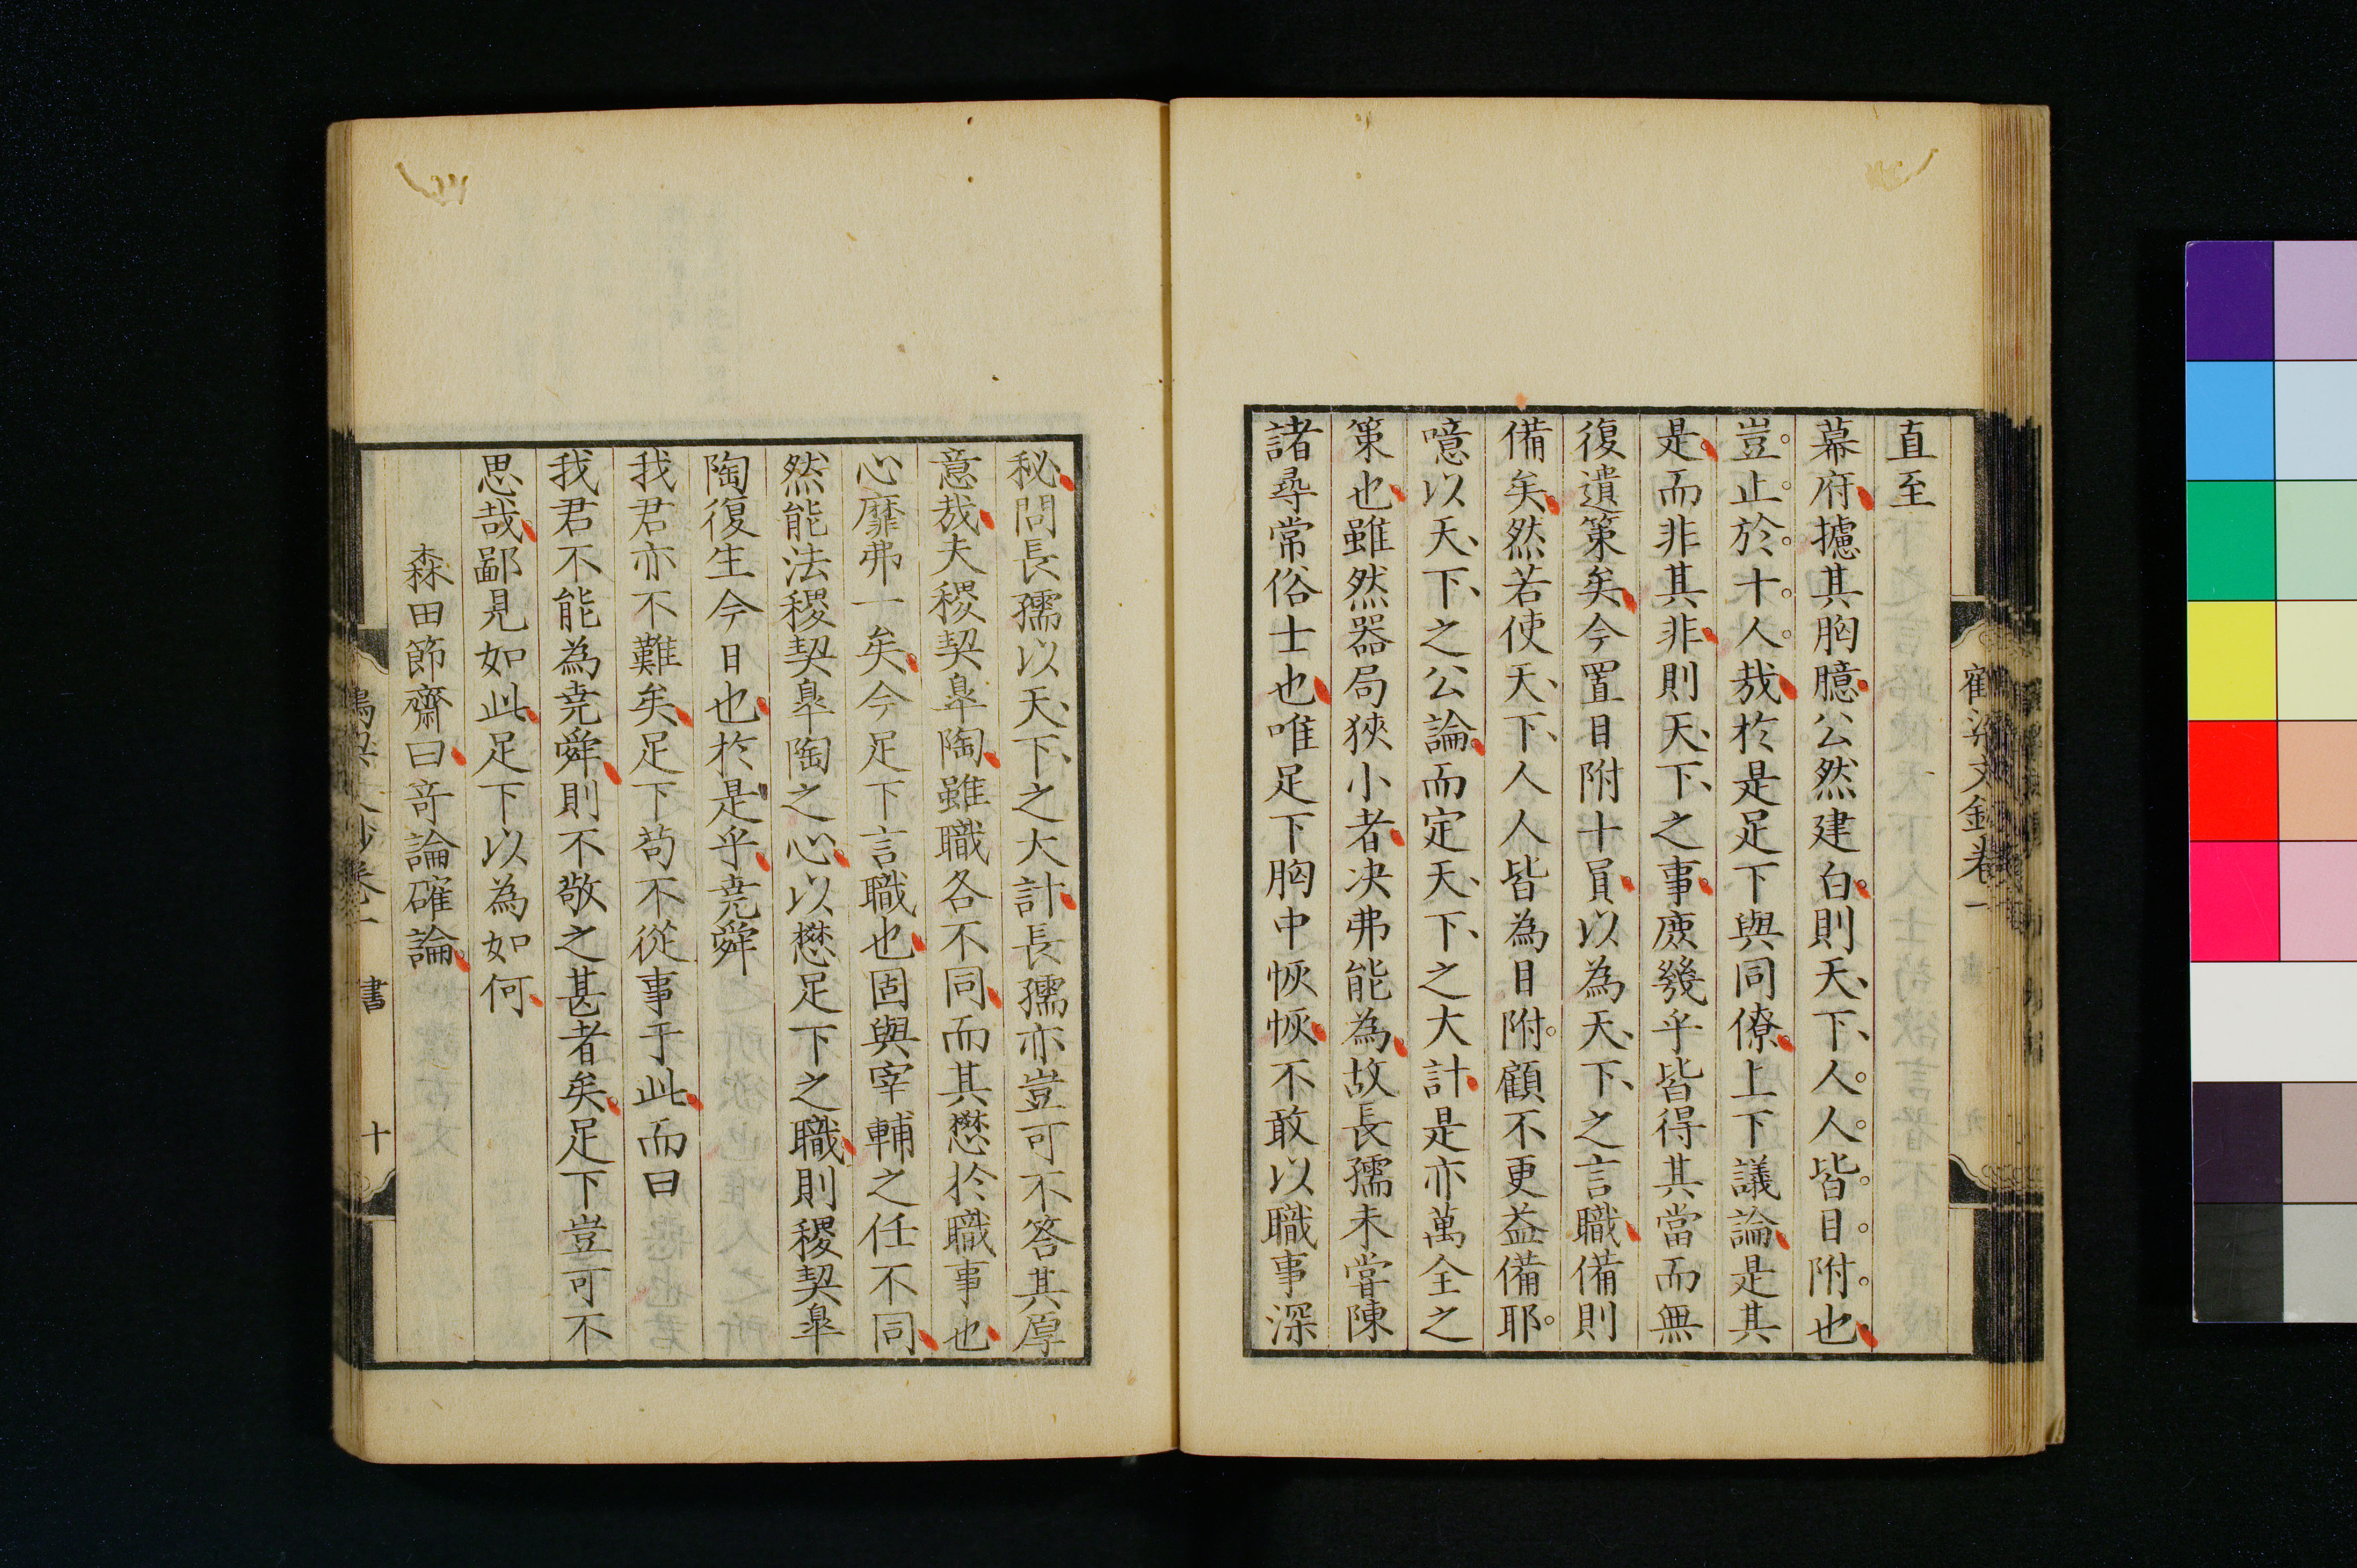 直至
幕府攄其胸臆公然建白則天下人人皆目附也
豈止於十人哉於是足下與同僚上下議論是其
是而非其非則天下之事庶幾乎皆得其當而無
復遺策矣今置目附十員以為天下之言職備則
備矣然若使天下人人皆為目附顧不更益備耶
噫以天下之公論而定天下之大計是亦萬全之
策也雖然器局狹小者决弗能為故長孺未嘗陳
諸尋常俗士也唯足下胸中恢恢不敢以職事深
秘問長孺以天下之大計長孺亦豈可不答其厚
意哉夫稷契皐陶雖職各不同而其懋於職事也
心靡弗一矣今足下言職也固與宰輔之任不同
然能法稷契皐陶之心以懋足下之職則稷契皐
陶復生今日也於是乎堯舜
我君亦不難矣足下苟不從事于此而曰
我君不能為堯舜則不敬之甚者矣足下豈可不
思哉鄙見如此足下以為如何
森田節齋曰奇論確論
書
十